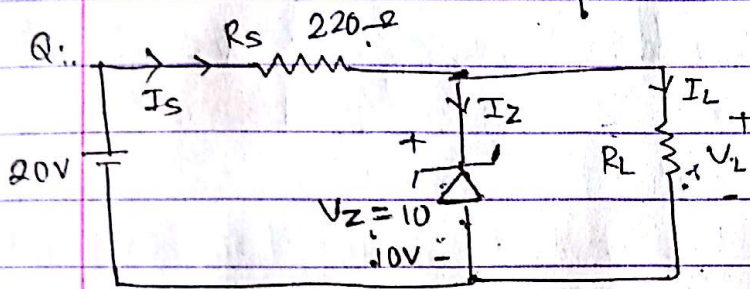 Q:.
Rs 220Ω
Is
Iz
IL
20V
+
RL
+
VL
-
Vz = 10
10V -